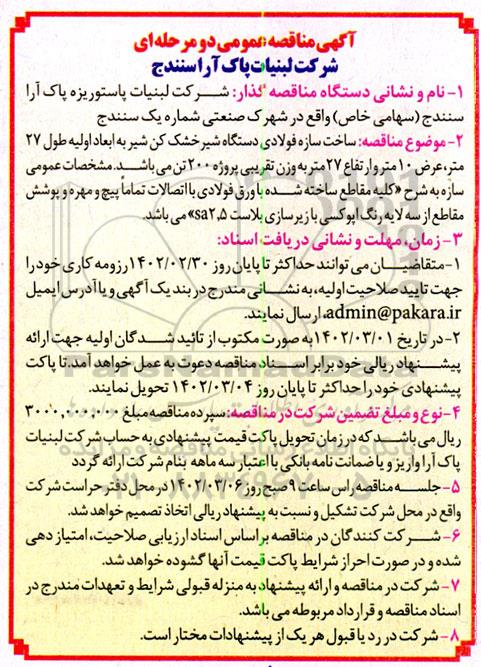 آگهی مناقصه عمومی دو مرحله ای
شرکت لبنیات پاک آرا سنندج
۱- نام و نشانی دستگاه مناقصه گذار: شرکت لبنیات پاستوریزه پاک آرا
سنندج (سهامی خاص) واقع در شهرک صنعتی شماره یک سنندج
۲- موضوع مناقصه: ساخت سازه فولادی دستگاه شیر خشک کن شیر به ابعاد اولیه طول ۲۷
متر، عرض ۱۰ متر و ارتفاع ۲۷ متر به وزن تقریبی پروژه ۲۰۰ تن می باشد. مشخصات عمومی
سازه به شرح «کلیه مقاطع ساخته شده با ورق فولادی با اتصالات تماماً پیچ و مهره و پوشش
مقاطع از سه لایه رنگ اپوکسی با زیرسازی بلاست sa۲,۵» می باشد.
۳- زمان، مهلت و نشانی دریافت اسناد:
۱- متقاضیان می توانند حداکثر تا پایان روز ۱۴۰۲/۰۲/۳۰ رزومه کاری خود را
جهت تایید صلاحیت اولیه، به نشانی مندرج در بند یک آگهی و یا آدرس ایمیل
admin@pakara.ir، ارسال نمایند.
۲- در تاریخ ۱۴۰۲/۰۳/۰۱ به صورت مکتوب از تائید شدگان اولیه جهت ارائه
پیشنهاد ریالی خود برابر اسناد مناقصه دعوت به عمل خواهد آمد. تا پاکت
پیشنهادی خود را حداکثر تا پایان روز ۱۴۰۲/۰۳/۰۴ تحویل نمایند.
۴- نوع و مبلغ تضمین شرکت در مناقصه: سپرده مناقصه مبلغ ۳۰۰۰,۰۰۰,۰۰۰
ریال می باشد که در زمان تحویل پاکت قیمت پیشنهادی به حساب شرکت لبنیات
پاک آرا واریز و یا ضمانت نامه بانکی با اعتبار سه ماهه بنام شرکت ارائه گردد
۵- جلسه مناقصه راس ساعت ۹ صبح روز ۱۴۰۲/۰۳/۰۶ در محل دفتر حراست شرکت
واقع در محل شرکت تشکیل و نسبت به پیشنهاد ریالی اتخاذ تصمیم خواهد شد.
۶- شرکت کنندگان در مناقصه بر اساس اسناد ارزیابی صلاحیت، امتیاز دهی
شده و در صورت احراز شرایط پاکت قیمت آنها گشوده خواهد شد.
۷- شرکت در مناقصه و ارائه پیشنهاد به منزله قبولی شرایط و تعهدات مندرج در
اسناد مناقصه و قرارداد مربوطه می باشد.
۸- شرکت در رد یا قبول هر یک از پیشنهادات مختار است.